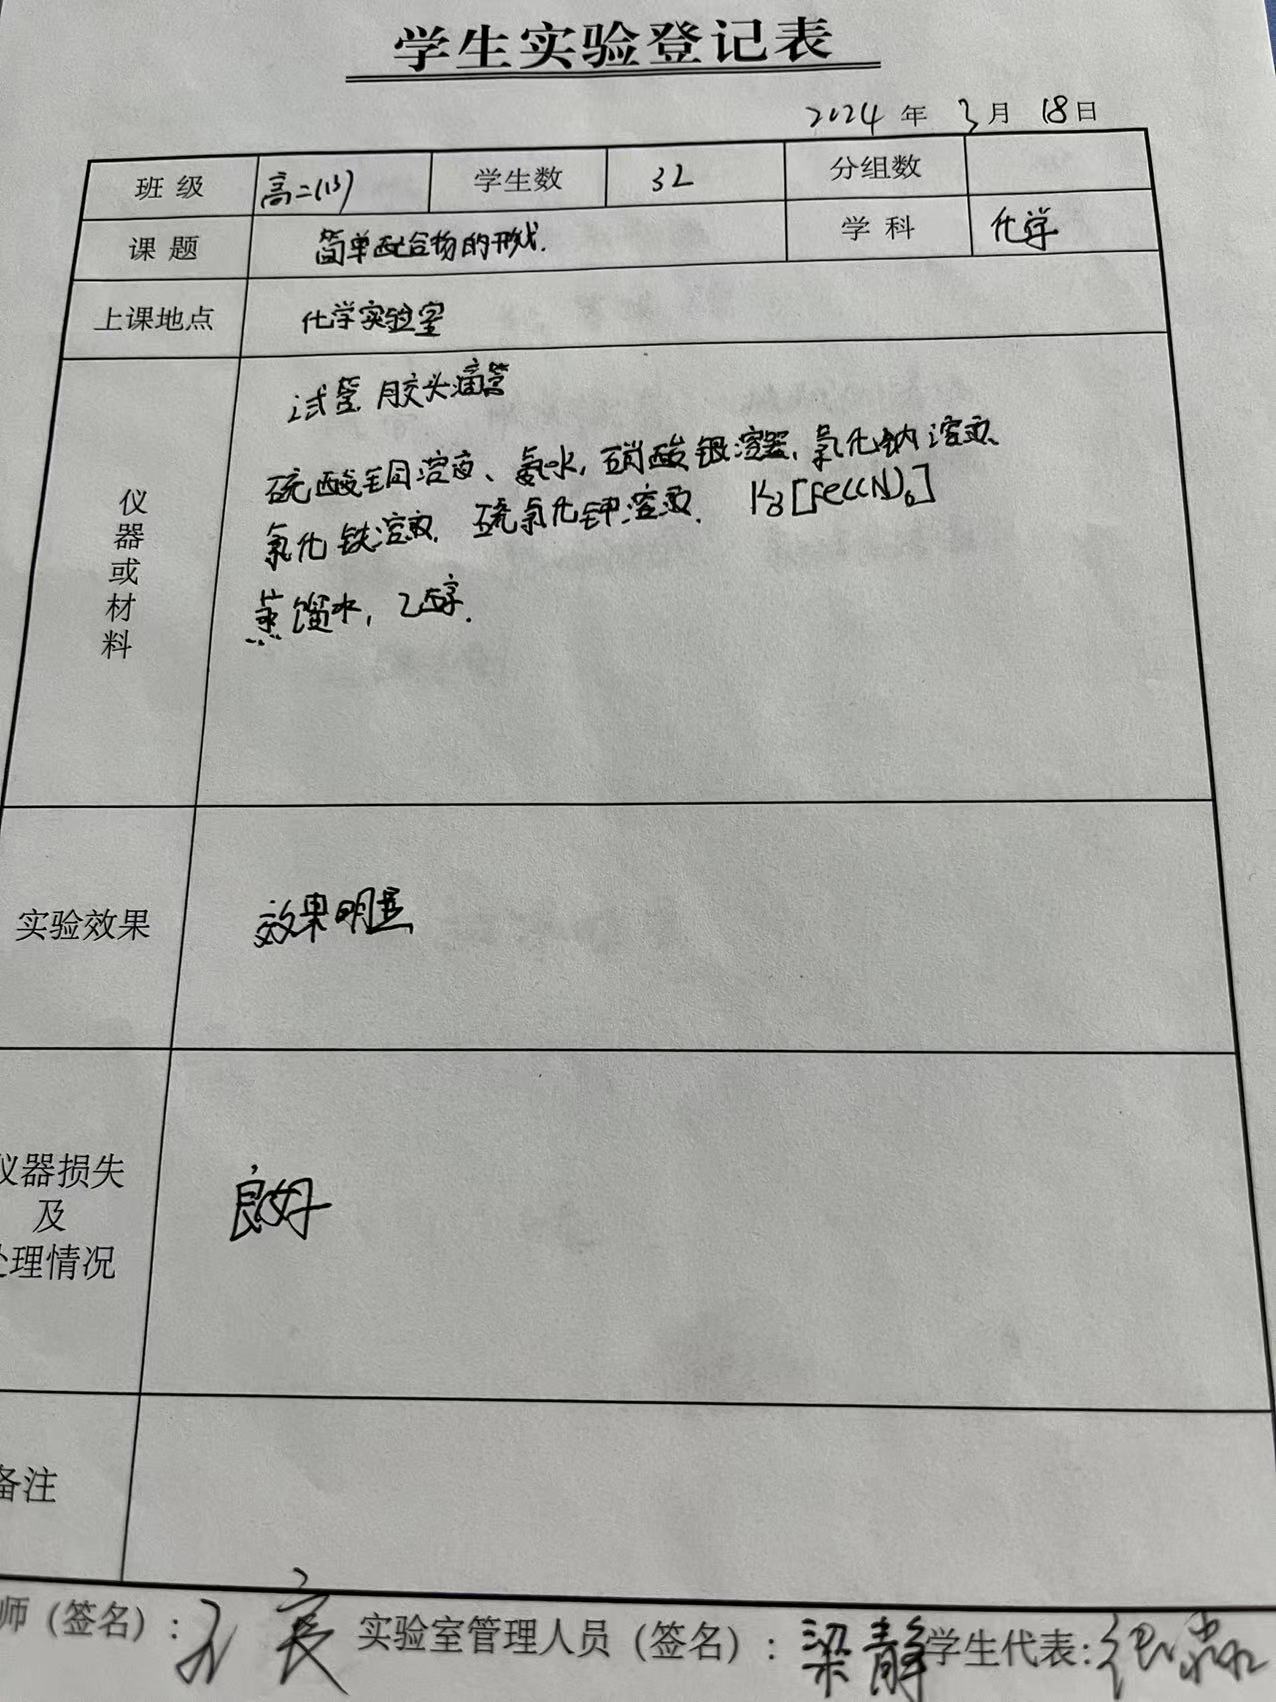 学生实验登记表
2024 年 3 月 18 日
班 级 高二(13) 学生数 32 分组数
课 题 简单配合物的形成. 学 科 化学
上课地点 化学实验室
仪器或材料
试管 胶头滴管
硫酸铜溶液、氨水, 硝酸银溶液, 氯化钠溶液、
氯化铁溶液. 硫氰化钾溶液. K3[Fe(CN)6]
蒸馏水, 乙醇.
实验效果 效果明显
仪器损失
及
处理情况
良好
备注
师（签名）： 实验室管理人员（签名）：梁静 学生代表：